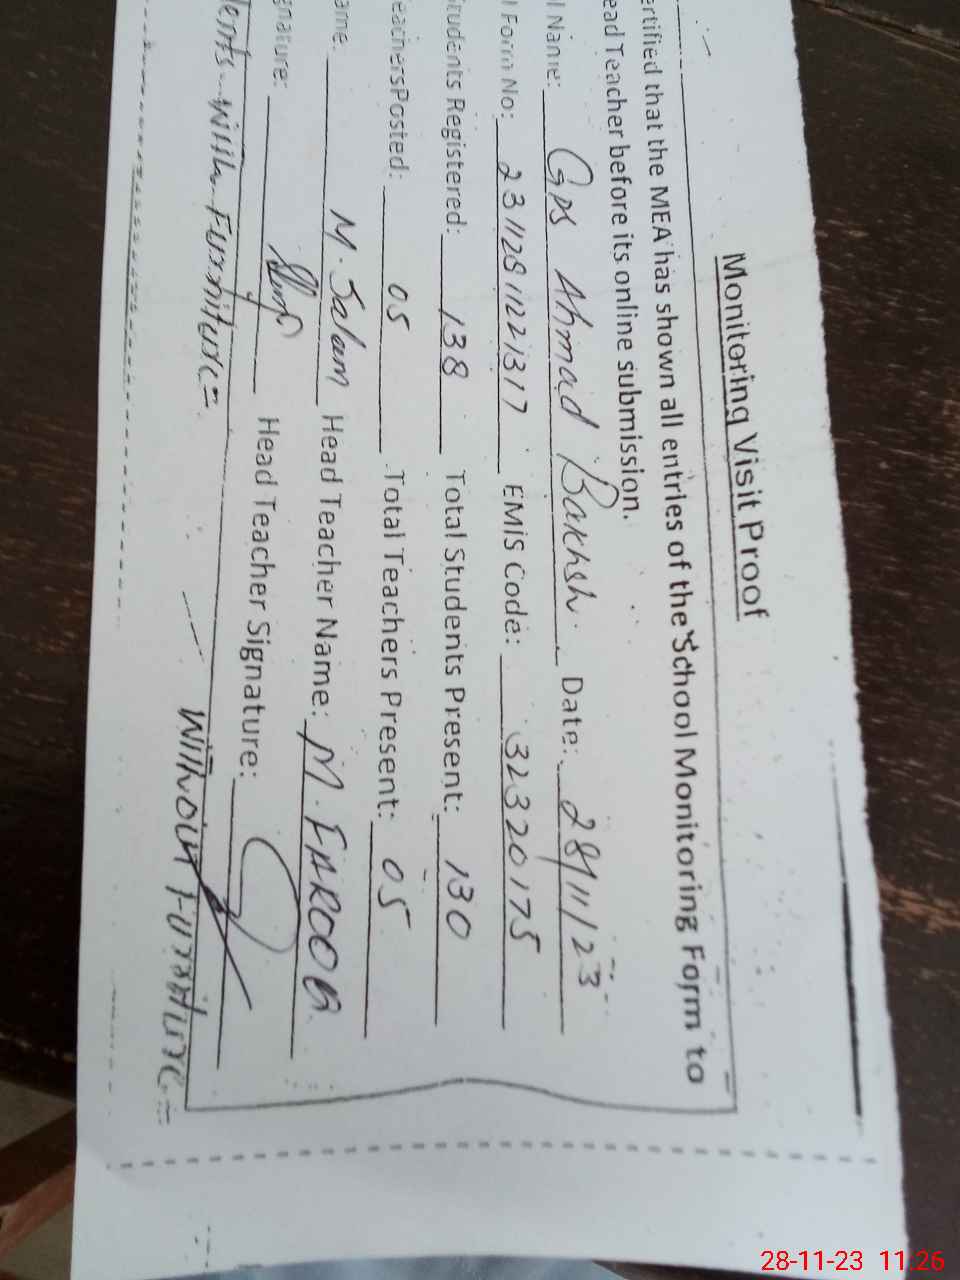 Monitoring Visit Proof
ertified that the MEA has shown all entries of the School Monitoring Form to
ead Teacher before its online submission.
l Name: GPS Ahmad Bakhsh Date: 28/11/23
l Form No: 23112811221317 EMIS Code: 32320175
tudents Registered: 138 Total Students Present: 130
eachersPosted: 05 Total Teachers Present: 05
ame: M. Salam Head Teacher Name: M. FAROOQ
gnature: Head Teacher Signature:
dents With Furniture= Without Furniture=
28-11-23 11:26